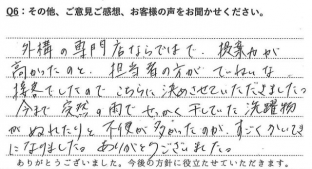 Q6：その他、ご意見ご感想、お客様の声をお聞かせください。
外構の専門店ならではで、提案力が
高かったのと、担当者の方がていねいな
接客でしたのでこちらに決めさせていただきました。
今まで突然の雨でせっかく干していた洗濯物
がぬれたりと不便が多かったのが、すごくかいてき
になりました。ありがとうございました。
ありがとうございました。今後の方針に役立たせていただきます。